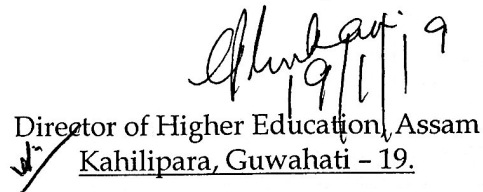 19/1/19
Director of Higher Education, Assam
Kahilipara, Guwahati – 19.